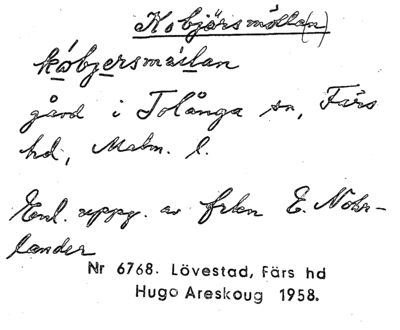 Kobjärsmölla(n)
kåbjersmáslan
gård i Tolånga sn, Färs
hd, Malm. l.
Enl. uppg. av frkn E. Nohr-
lander
Nr 6768. Lövestad, Färs hd
Hugo Areskoug 1958.